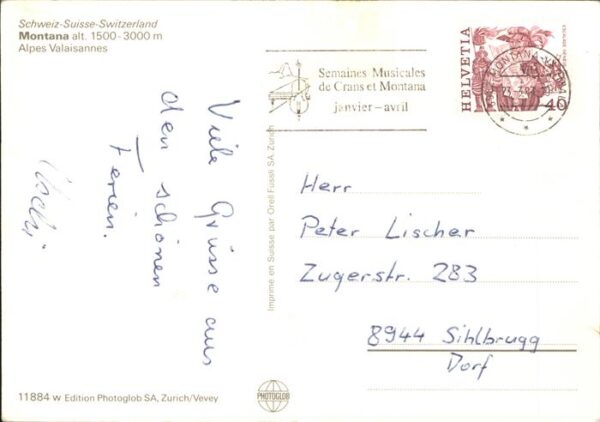 Schweiz-Suisse-Switzerland
Montana alt. 1500-3000 m
Alpes Valaisannes
Viele Grüsse aus
den schönen
Ferien.
Uschi
Imprimé en Suisse par Orell Füssli SA, Zurich
Semaines Musicales
de Crans et Montana
janvier – avril
HELVETIA
40
MONTANA-VERMALA
Herr
Peter Lischer
Zugerstr. 283
8944 Sihlbrugg
Dorf
11884 w Edition Photoglob SA, Zurich/Vevey
PHOTOGLOB